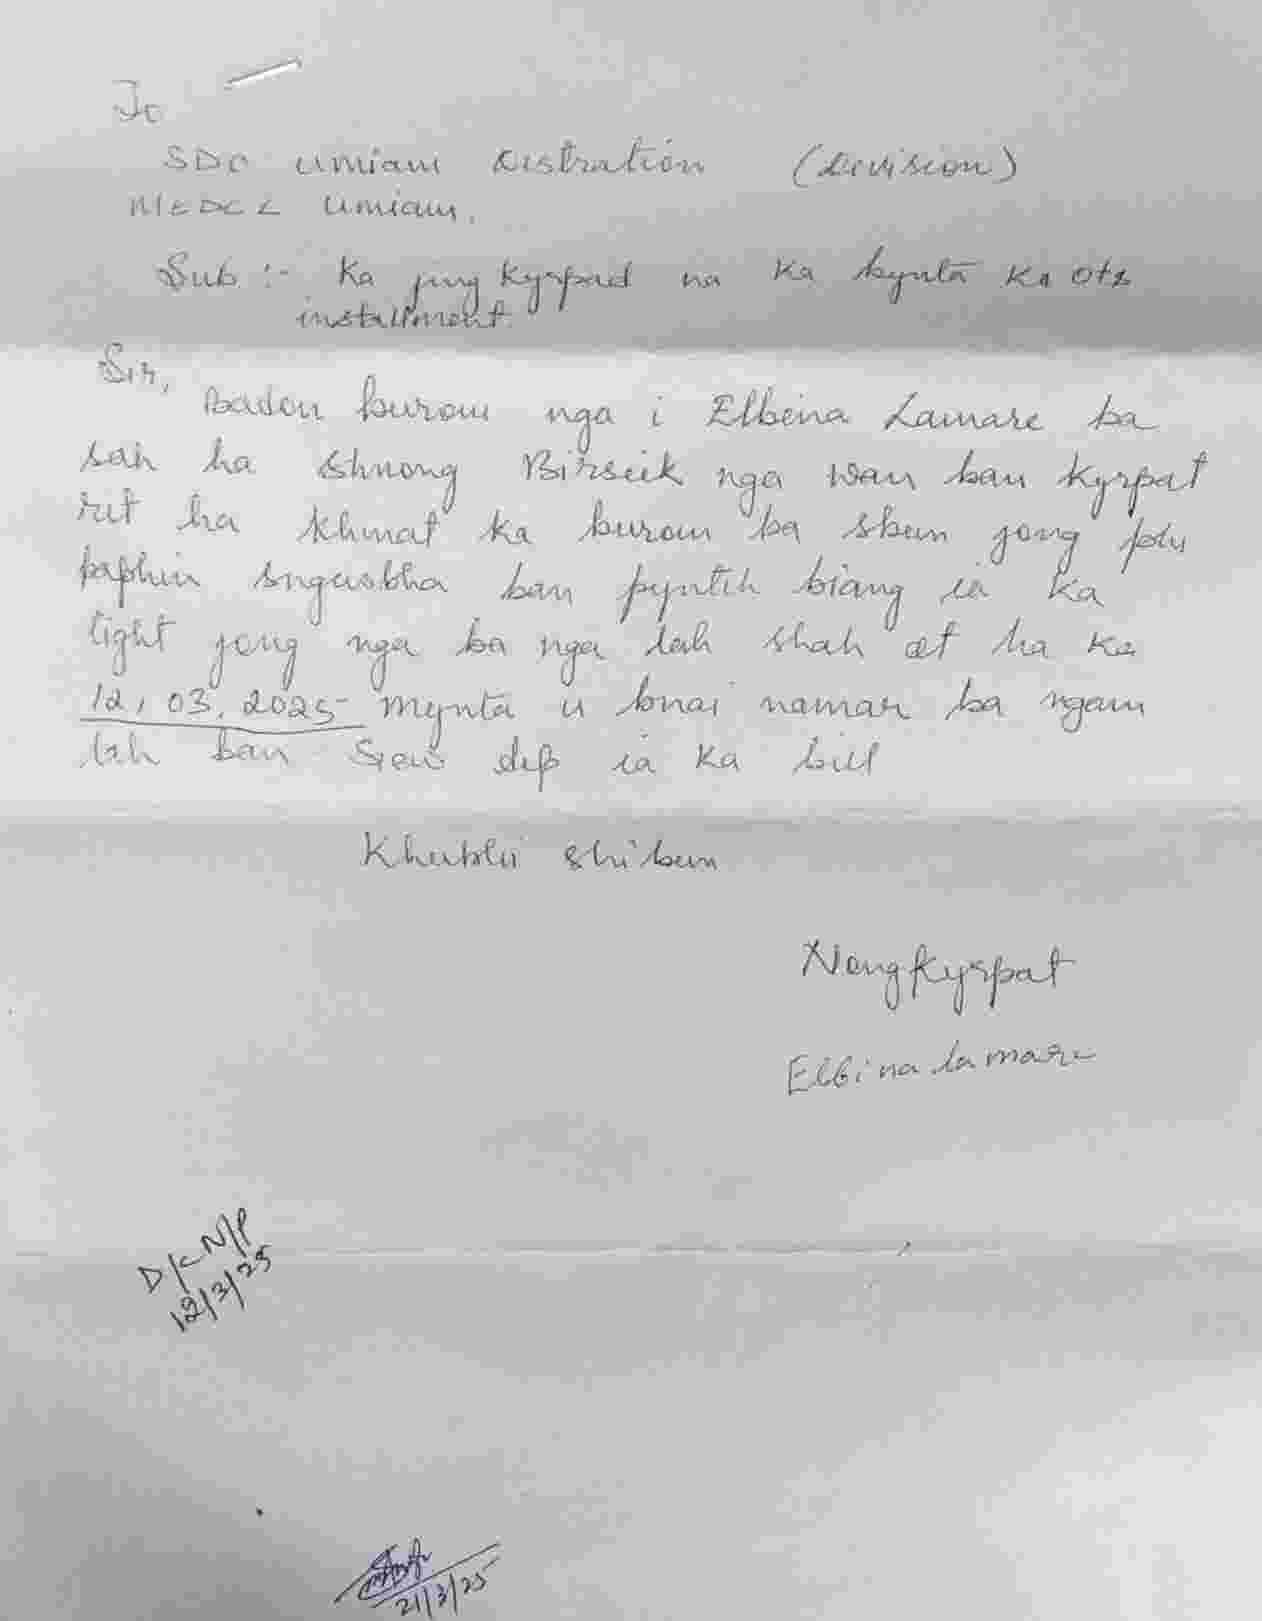 To
SDO Umiam Distration (Division)
MEDCL Umiam.
Sub :- Ka jingkyrpad na ka bynta ka OTS
installment.
Sir,
Badon burom nga i Elbeina Lamare ba
sah ha shnong Birseik nga wan ban kyrpat
rit ha khmat ka burom ba shun jong phi
baphin sngewbha ban pyntih biang ia ka
light jong nga ba nga lah shah ot ha ka
12, 03, 2025 mynta u bnai namar ba ngam
lah ban siew dep ia ka bill
Khublei shibun
Nongkyrpat
Elbina Lamare
D/C N/P
12/3/25
21/3/25